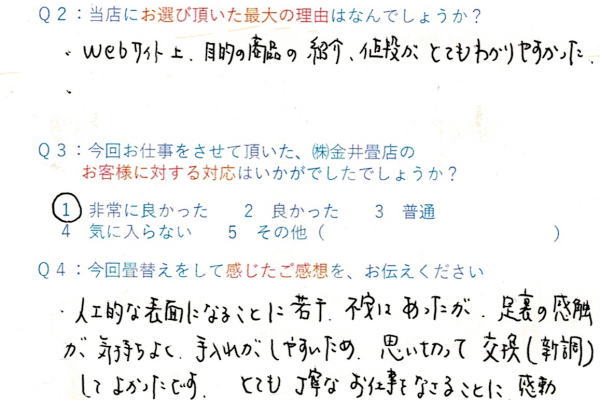 Q2：当店にお選び頂いた最大の理由はなんでしょうか？
・Webサイト上、目的の商品の紹介、値段が、とてもわかりやすかった、
・
Q3：今回お仕事をさせて頂いた、㈱金井畳店の
お客様に対する対応はいかがでしたでしょうか？
1 非常に良かった 2 良かった 3 普通
4 気に入らない 5 その他（ ）
Q4：今回畳替えをして感じたご感想を、お伝えください
・人工的な表面になることに若干、不安はあったが、足裏の感触
が、気持ちよく、手入れが、しやすいため、思い切って交換(新調)
してよかったです。 とても丁寧なお仕事をなさることに感動